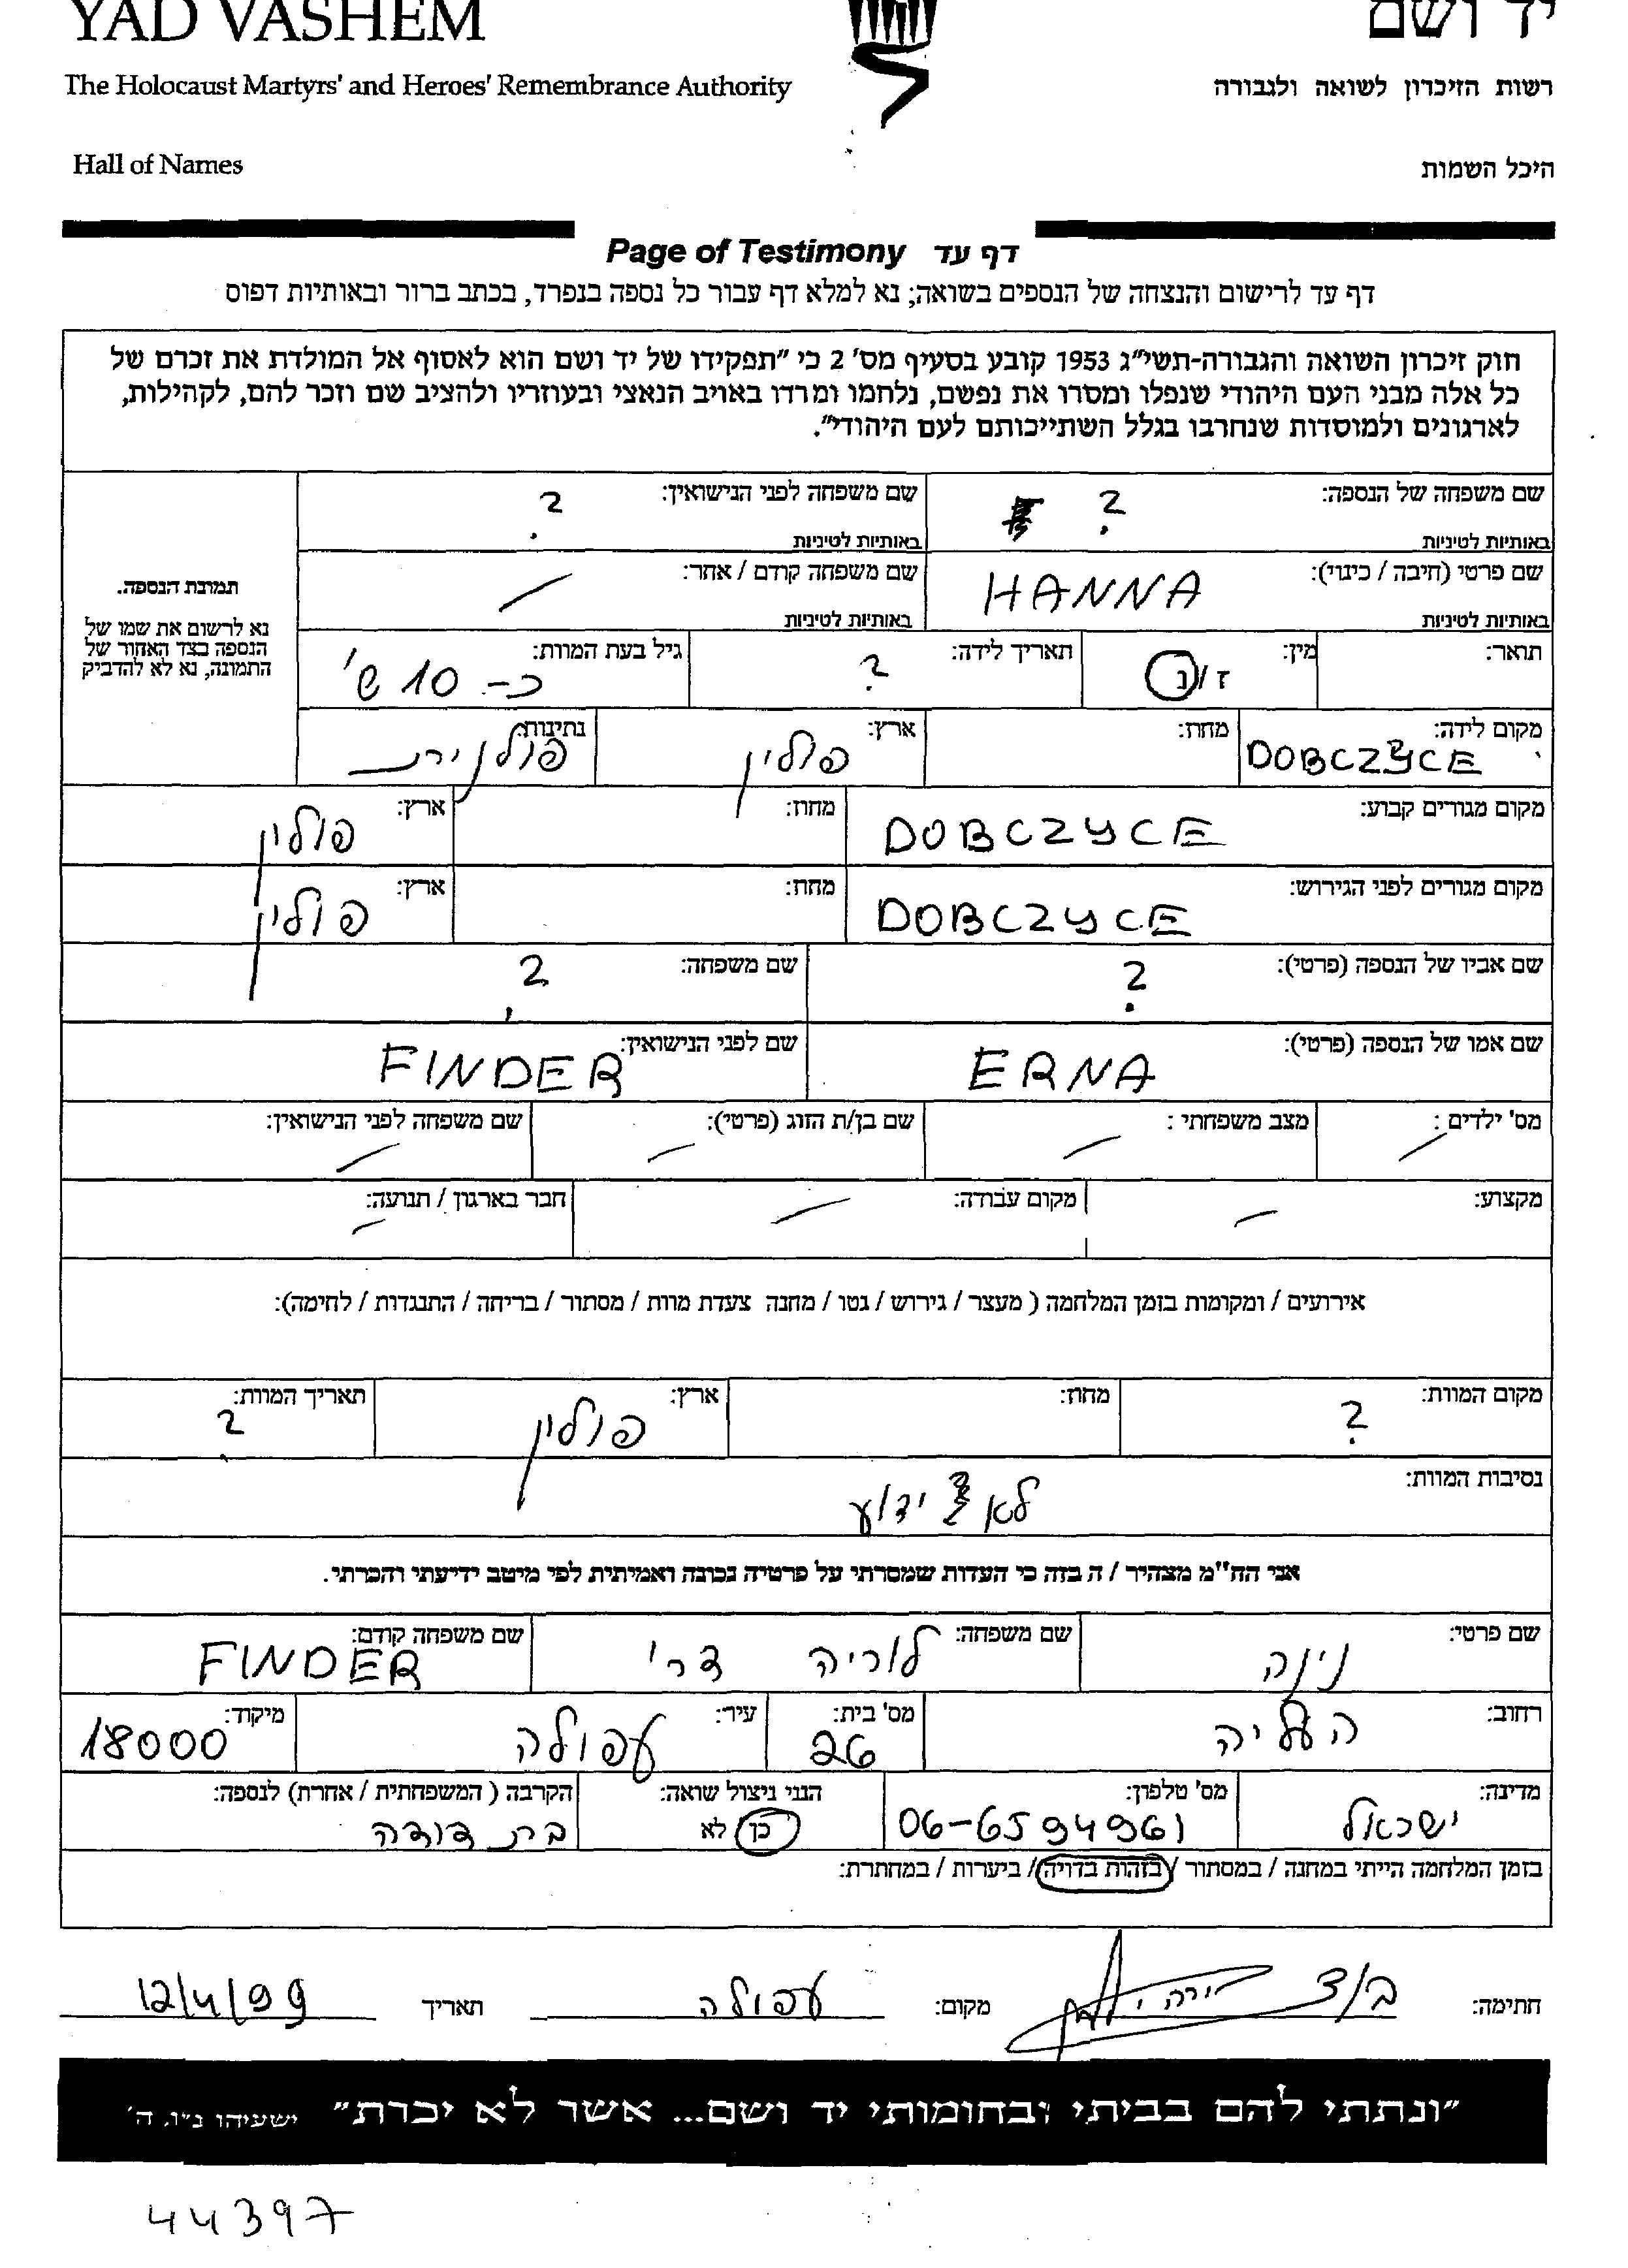 YAD VASHEM יד ושם
The Holocaust Martyrs' and Heroes' Remembrance Authority רשות הזיכרון לשואה ולגבורה
Hall of Names היכל השמות
Page of Testimony דף עד
דף עד לרישום והנצחה של הנספים בשואה; נא למלא דף עבור כל נספה בנפרד, בכתב ברור ובאותיות דפוס
חוק זיכרון השואה והגבורה-תשי"ג 1953 קובע בסעיף מס' 2 כי "תפקידו של יד ושם הוא לאסוף אל המולדת את זכרם של
כל אלה מבני העם היהודי שנפלו ומסרו את נפשם, נלחמו ומרדו באויב הנאצי ובעוזריו ולהציב שם וזכר להם, לקהילות,
לארגונים ולמוסדות שנחרבו בגלל השתייכותם לעם היהודי".
שם משפחה של הנספה: ? שם משפחה לפני הנישואין: ?
באותיות לטיניות באותיות לטיניות
שם פרטי (חיבה / כינוי): HANNA שם משפחה קודם / אחר: /
באותיות לטיניות באותיות לטיניות
תמונת הנספה.
נא לרשום את שמו של
הנספה בצד האחור של
התמונה, נא לא להדביק
תואר: מין: ז / נ תאריך לידה: ? גיל בעת המוות: כ- 10 ש'
מקום לידה: DOBCZYCE מחוז: ארץ: פולין נתינות: פולנית
מקום מגורים קבוע: DOBCZYCE מחוז: ארץ: פולין
מקום מגורים לפני הגירוש: DOBCZYCE מחוז: ארץ: פולין
שם אביו של הנספה (פרטי): ? שם משפחה: ?
שם אמו של הנספה (פרטי): ERNA שם לפני הנישואין: FINDER
מס' ילדים: / מצב משפחתי: / שם בן/ת הזוג (פרטי): / שם משפחה לפני הנישואין: /
מקצוע: / מקום עבודה: / חבר בארגון / תנועה: /
אירועים / ומקומות בזמן המלחמה ( מעצר / גירוש / גטו / מחנה צעדת מוות / מסתור / בריחה / התנגדות / לחימה):
מקום המוות: ? מחוז: ארץ: פולין תאריך המוות: ?
נסיבות המוות: לא ידוע
אני הח"מ מצהיר / ה בזה כי העדות שמסרתי על פרטיה נכונה ואמיתית לפי מיטב ידיעתי והכרתי.
שם פרטי: נינה שם משפחה: לוריה דרי שם משפחה קודם: FINDER
רחוב: העליה מס' בית: 26 עיר: עפולה מיקוד: 18000
מדינה: ישראל מס' טלפון: 06-6594961 הנני ניצול שואה: כן לא הקרבה ( המשפחתית / אחרת) לנספה: בת דודה
בזמן המלחמה הייתי במחנה / במסתור / בזהות בדויה / ביערות / במחתרת:
חתימה: מקום: עפולה תאריך 12/4/99
"ונתתי להם בביתי ובחומותי יד ושם... אשר לא יכרת" ישעיהו נ"ו, ה'
44397